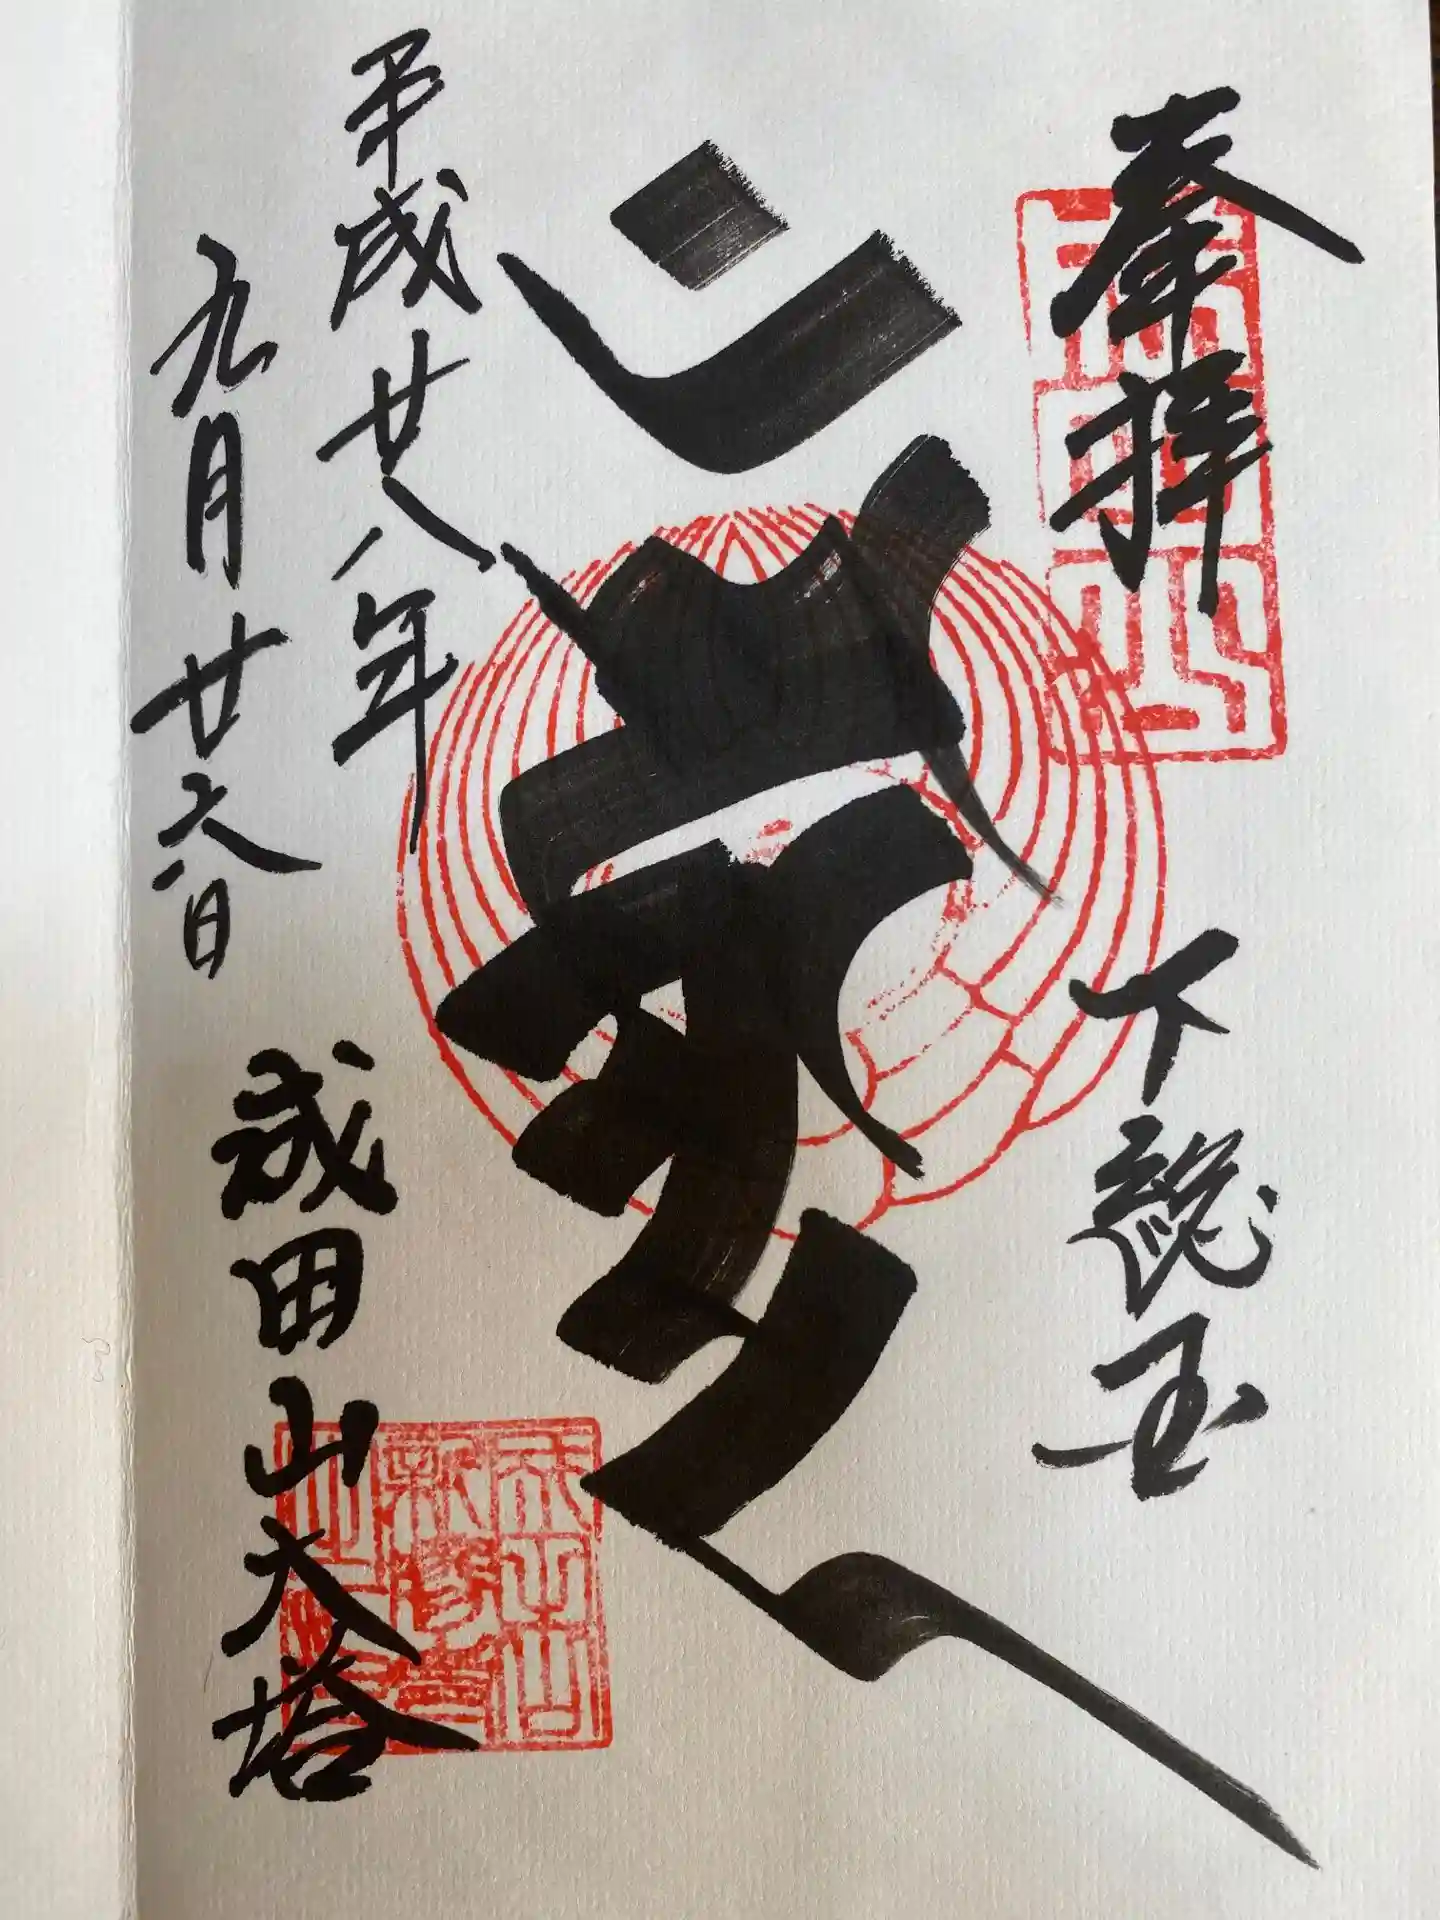 奉拝
下総玉
平成廿八年
九月廿六日
成田山大塔